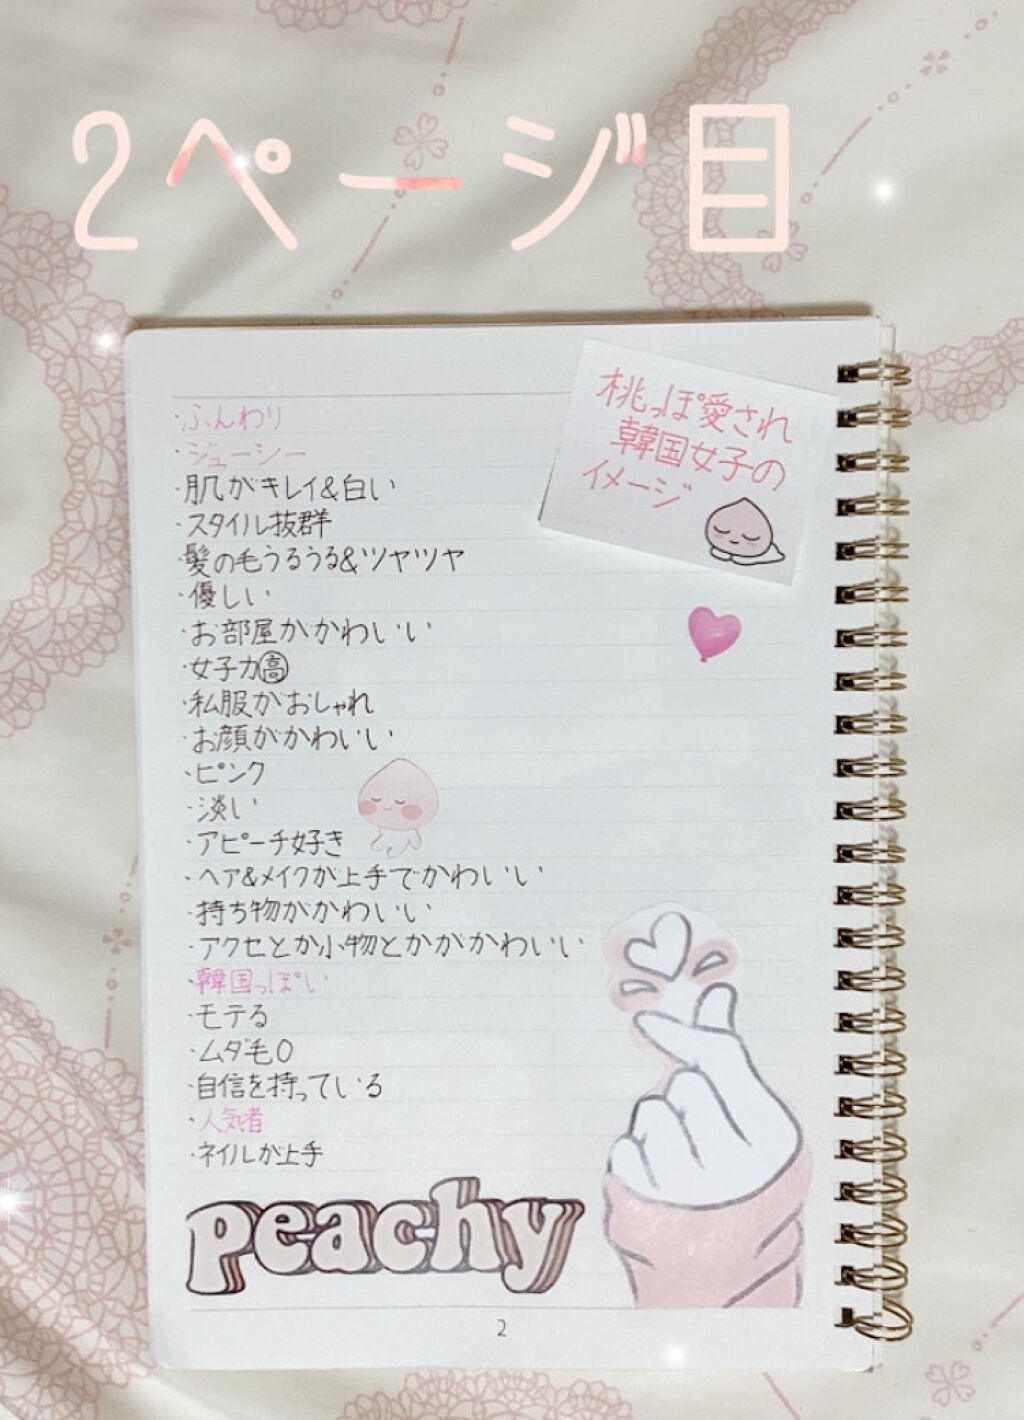 2ページ目
桃っぽ愛され
韓国女子の
イメージ
・ふんわり
・ジューシー
・肌がキレイ&白い
・スタイル抜群
・髪の毛うるうる&ツヤツヤ
・優しい
・お部屋がかわいい
・女子力高
・私服がおしゃれ
・お顔がかわいい
・ピンク
・淡い
・アピーチ好き
・ヘア&メイクが上手でかわいい
・持ち物がかわいい
・アクセとか小物とかがかわいい
・韓国っぽい
・モテる
・ムダ毛0
・自信を持っている
・人気者
・ネイルが上手
peachy
2